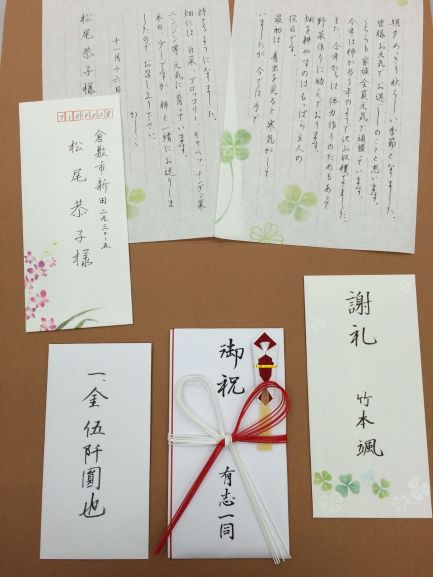 朝夕めっきり秋らしい季節となりました。
皆様お元気でお過ごしのことと思います。
こちらも家族全員元気で頑張っています。
今年は柿が当り年のようで沢山収穫できました。
また、今年からは体力作りのためもあって
野菜作りに励んでおります。
畑を耕やすのはもっぱら主人の
役目です。
最初は青虫を見ると寒気がして
いましたが、今では手で
持てるようになりました。
畑には白菜、ブロッコリー、キャベツ、チンゲン菜
ニンジン等元気に育っています。
本日、少しですが柿と一緒にお送りしま
したのでお召し上り下さい。
かしこ
十一月十六日
松尾恭子様
倉敷市新田二九三〇-五
松尾恭子様
謝礼
竹本颯
御祝
有志一同
一、金伍阡圓也